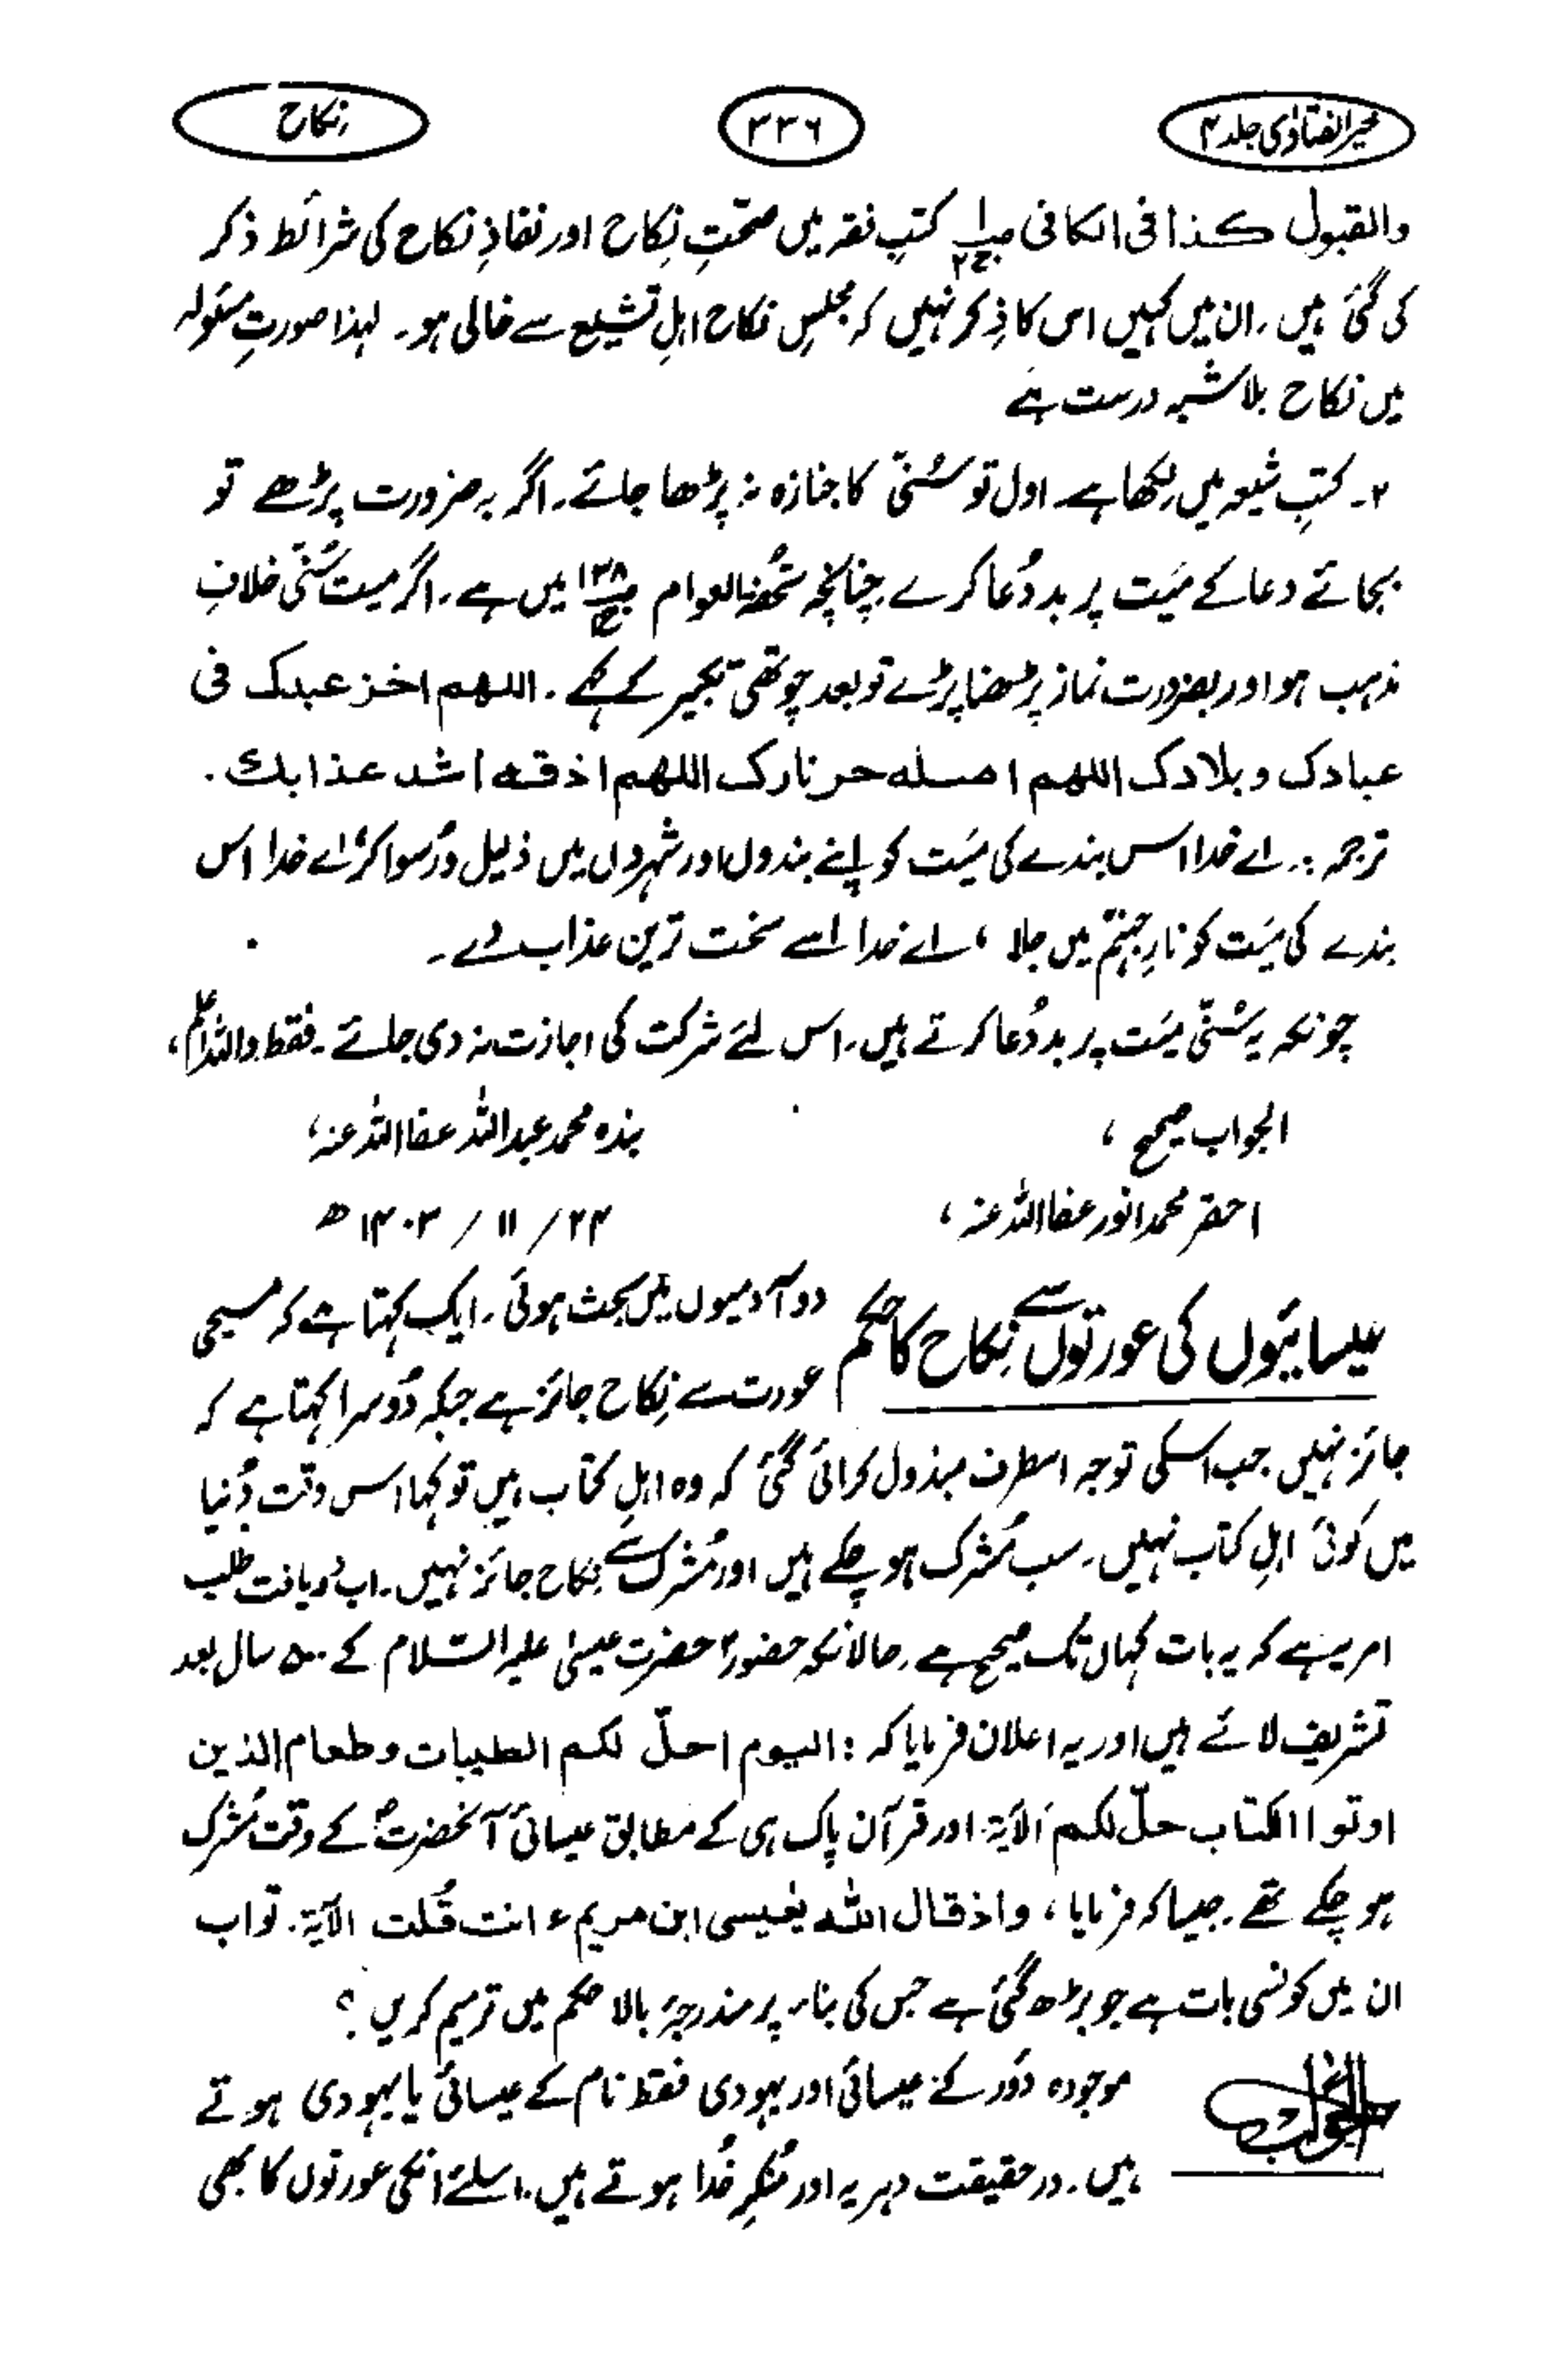 خیر الفتاوٰی جلد ۴
۳۳۶
نکاح
والقبول کذا فی الکافی ص۱ ج۲ کتبِ فقہ میں صحتِ نِکاح اور نفاذِ نکاح کی شرائط ذکر
کی گئی ہیں۔ ان میں کہیں اس کا ذِکر نہیں کہ مجلسِ نکاح اہلِ تشیع سے خالی ہو۔ لہٰذا صورتِ مسئولہ
میں نکاح بلا شبہ درست ہے
۲۔ کتبِ شیعہ میں لِکھا ہے اول تو سُنّی کا جنازہ نہ پڑھا جائے۔ اگر بہ ضرورت پڑھے تو
بجائے دعا کے میّت پر بد دُعا کرے چنانچہ تحفۃ العوام ص۱۳۸ ج میں ہے۔ اگر میت سُنّی خلافِ
مذہب ہو اور بضرورت نماز پڑھنا پڑے تو بعد چوتھی تکبیر کے کہے۔ اللھم اخز عبدک فی
عبادک و بلادک اللھم اصلہ حر نارک اللھم اذقہ اشد عذابک.
ترجمہ:۔ اے خدا اس بندے کی میّت کو اپنے بندوں اور شہروں میں ذلیل و رُسوا کر، اے خدا اس
بندے کی میّت کو نارِ جہنّم میں جلا، اے خدا اسے سخت ترین عذاب دے۔
چونکہ یہ سُنّی میّت پر بد دُعا کرتے ہیں۔ اس لئے شرکت کی اجازت نہ دی جائے۔ فقط واللہ اعلم،
الجواب صحیح، بندہ محمد عبداللہ عفا اللہ عنہ،
احقر محمد انور عفا اللہ عنہ، ۲۴/ ۱۱/ ۱۴۰۳ھ
عیسائیوں کی عورتوں سے نِکاح کا حکم
دو آدمیوں میں بحث ہوئی۔ ایک کہتا ہے کہ مسیحی
عورت سے نِکاح جائز ہے جبکہ دُوسرا کہتا ہے کہ
جائز نہیں۔ جب اسکی توجہ اسطرف مبذول کرائی گئی کہ وہ اہلِ کتاب ہیں تو کہا اس وقت دُنیا
میں کوئی اہلِ کتاب نہیں۔ سب مُشرک ہو چکے ہیں اور مُشرک سے نِکاح جائز نہیں۔ اب دریافت طلب
امر یہ ہے کہ یہ بات کہاں تک صحیح ہے۔ حالانکہ حضورؐ حضرت عیسیٰ علیہ السّلام کے ۵۰۰ سال بعد
تشریف لائے ہیں اور یہ اعلان فرمایا کہ: الیوم احلّ لکم الطیبات وطعام الذین
اوتوا الکتاب حلّ لکم الاٰیۃ اور قرآن پاک ہی کے مطابق عیسائی آنحضرتؐ کے وقت مُشرک
ہو چکے تھے۔ جیسا کہ فرمایا، واذ قال اللہ یٰعیسی ابن مریم ءانت قُلت الاٰیۃ۔ تو اب
ان میں کونسی بات ہے جو بڑھ گئی ہے جس کی بناء پر مندرجۂ بالا حکم میں ترمیم کریں؟
الجواب
موجودہ دَور کے عیسائی اور یہودی فقط نام کے عیسائی یا یہودی ہوتے
ہیں۔ در حقیقت دہریہ اور مُنکرِ خُدا ہوتے ہیں۔ اسلئے انکی عورتوں کا بھی